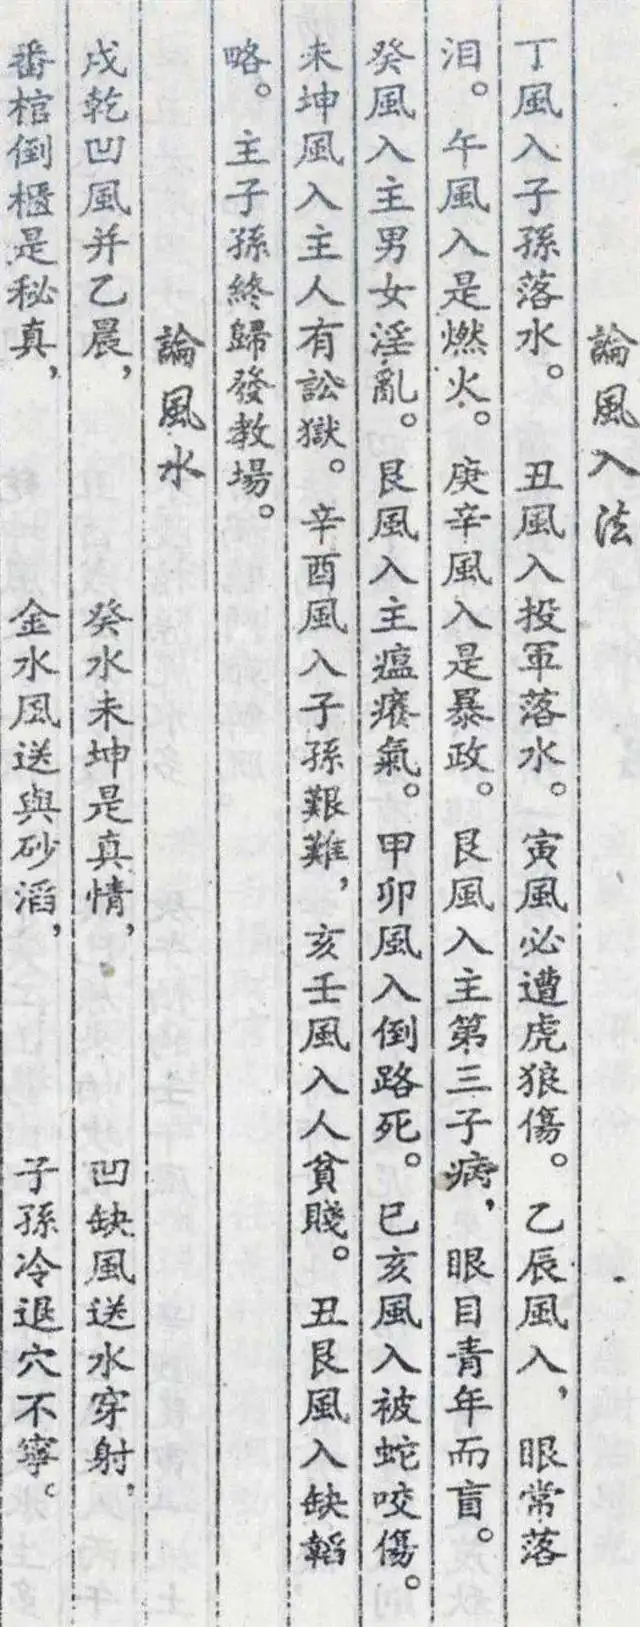 論風入法
丁風入子孫落水。丑風入投軍落水。寅風必遭虎狼傷。乙辰風入，眼常落
泪。午風入是燃火。庚辛風入是暴政。艮風入主第三子病，眼目青年而盲。
癸風入主男女淫亂。艮風入主瘟癀氣。甲卯風入倒路死。巳亥風入被蛇咬傷。
未坤風入主人有訟獄。辛酉風入子孫艱難，亥壬風入人貧賤。丑艮風入缺韜
略。主子孫終歸發教場。
論風水
戌乾凹風并乙晨，癸水未坤是真情，凹缺風送水穿射，
番棺倒櫃是秘真，金水風送與砂滔，子孫冷退穴不寧。